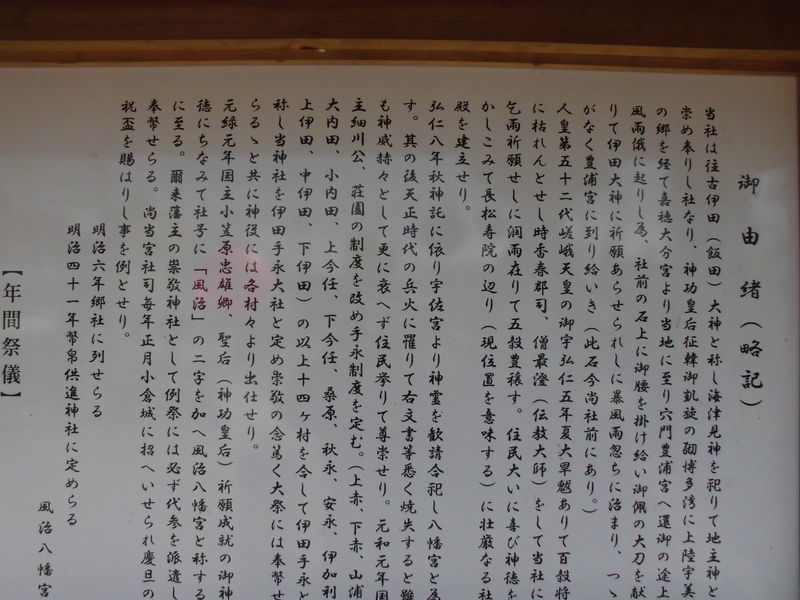 御由緒（略記）
当社は往古伊田（飯田）大神と称し海津見神を祀りて地主神と
崇め奉りし社なり、神功皇后征韓御凱旋の砌博多湾に上陸宇美
の郷を経て嘉穂大分宮より当地に至り穴門豊浦宮へ還御の途上
風雨俄に起りし為、社前の石上に御腰を掛け給い御佩の大刀を献
りて伊田大神に祈願あらせられしに暴風雨忽ちに治まり、つゝ
がなく豊浦宮に到り給いき（此石今尚社前にあり。）
人皇第五十二代嵯峨天皇の御宇弘仁五年夏大旱魃ありて百穀将
に枯れんとせし時香春郡司、僧最澄（伝教大師）をして当社に
乞雨祈願せしに潤雨在りて五穀豊穣す。住民大いに喜び神徳を
かしこみて長松寿院の辺り（現位置を意味する）に壮厳なる社
殿を建立せり。
弘仁八年秋神託に依り宇佐宮より神霊を歓請合祀し八幡宮と為
す。其の後天正時代の兵火に罹りて右文書等悉く焼失すると雖
も神威赫々として更に衰へず住民挙りて尊崇せり。元和元年国
主細川公、荘園の制度を改め手永制度を定む。（上赤、下赤、山浦
大内田、小内田、上今任、下今任、桑原、秋永、安永、伊加利
上伊田、中伊田、下伊田）の以上十四ヶ村を合して伊田手永と
称し当神社を伊田手永大社と定め崇敬の念篤く大祭には奉幣せ
らるゝと共に神役には各村々より出仕せり。
元緑元年国主小笠原忠雄卿、聖后（神功皇后）祈願成就の御神
徳にちなみて社号に「風治」の二字を加へ風治八幡宮と称する
に至る。爾来藩主の崇敬神社として例祭には必ず代参を派遣し
奉幣せらる。尚当宮社司毎年正月小倉城に招へいせられ慶旦の
祝盃を賜はりし事を例とせり。
明治六年郷社に列せらる
明治四十一年幣帛供進神社に定めらる
風治八幡宮
【年間祭儀】